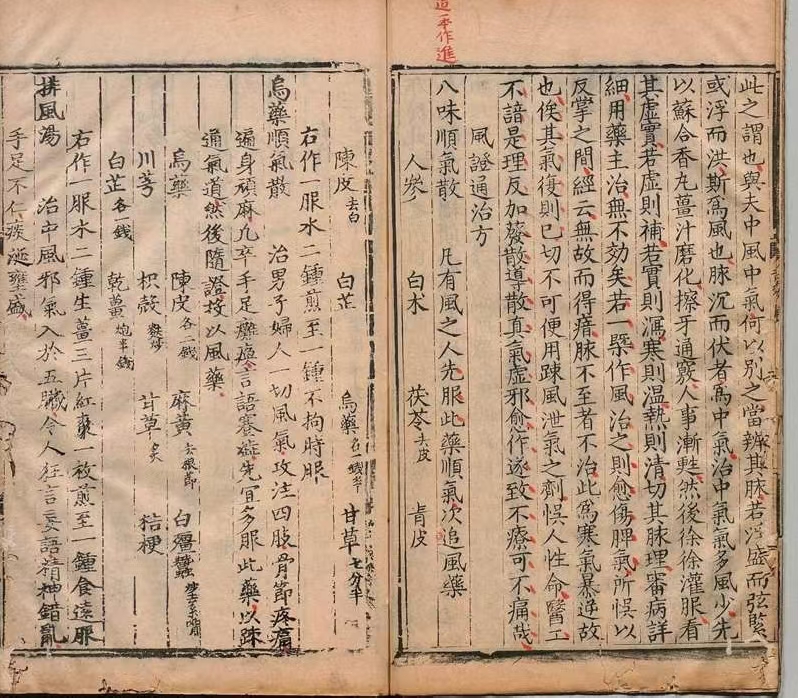 迨一本作進
此之謂也與夫中風中氣何以別之當辨其脉若浮盛而弦緊
或浮而洪斯為風也脉沉而伏者為中氣治中氣氣多風少先
以蘇合香丸薑汁磨化擦牙通竅人事漸甦然後徐徐灌服看
其虛實若虛則補若實則瀉寒則温熱則清切其脉理審病詳
細用藥主治無不効矣若一槩作風治之則愈傷脾氣所悞以
反掌之間經云無故而得瘖脉不至者不治此為寒氣暴逆故
也俟其氣復則已切不可便用踈風泄氣之劑悞人性命醫工
不諳是理反加發散導散真氣虛邪愈作遂致不療可不痛哉
風證通治方
八味順氣散 凡有風之人先服此藥順氣次追風藥
人參 白朮 茯苓去皮 青皮
陳皮去白 白芷 烏藥各一錢半 甘草七分半
右作一服水二鍾煎至一鍾不拘時服
烏藥順氣散 治男子婦人一切風氣攻注四肢骨節疼痛
遍身頑麻凡卒手足癱瘓言語蹇澁先宜多服此藥以踈
通氣道然後隨證投以風藥
烏藥 陳皮各二錢 麻黃去根節 白殭蠶
川芎 枳殼麩炒 甘草炙 桔梗
白芷各一錢 乾薑炮半錢
右作一服水二鍾生薑三片紅棗一枚煎至一鍾食遠服
排風湯 治中風邪氣入於五臟令人狂言妄語精神錯亂
手足不仁痰涎壅盛